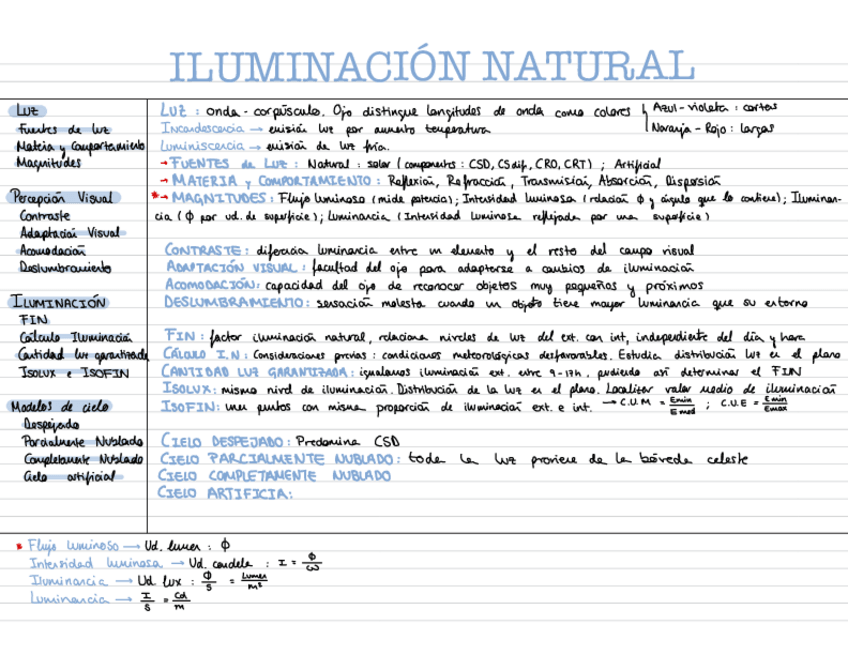 ILUMINACIÓN NATURAL
LUZ
Fuentes de luz
Materia y Comportamiento
Magnitudes
Percepción Visual
Contraste
Adaptación Visual
Acomodación
Deslumbramiento
ILUMINACIÓN
FIN
Cálculo Iluminación
Cantidad luz garantizada
ISOLUX e ISOFIN
Modelos de cielo
Despejado
Parcialmente Nublado
Completamente Nublado
Cielo artificial
LUZ : onda - corpúsculo. Ojo distingue longitudes de onda como colores
Azul-violeta : cortas
Naranja - Rojo : largas
Incandescencia → emisión luz por aumento temperatura
Luminiscencia → emisión de luz fría.
→ FUENTES de LUZ : Natural : solar ( componentes : CSD, CSdif, CRD, CRT ) ; Artificial
→ MATERIA y COMPORTAMIENTO : Reflexión, Refracción, Transmisión, Absorción, Dispersión
*→ MAGNITUDES : Flujo luminoso (mide potencia); Intensidad luminosa (relación Φ y ángulo que lo contiene); Iluminan-
cia ( Φ por ud. de superficie); Luminancia (Intensidad luminosa reflejada por una superficie)
CONTRASTE : diferencia luminancia entre un elemento y el resto del campo visual
ADAPTACIÓN VISUAL : facultad del ojo para adaptarse a cambios de iluminación
ACOMODACIÓN: capacidad del ojo de reconocer objetos muy pequeños y próximos
DESLUMBRAMIENTO : sensación molesta cuando un objeto tiene mayor luminancia que su entorno
FIN : factor iluminación natural, relaciona niveles de luz del ext. con int, independiente del día y hora
CÁLCULO I.N : Consideraciones previas : condiciones meteorológicas desfavorables. Estudia distribución luz en el plano
CANTIDAD LUZ GARANTIZADA : igualamos iluminación ext. entre 9-17h, pudiendo así determinar el FIN
ISOLUX : mismo nivel de iluminación. Distribución de la luz en el plano. Localizar valor medio de iluminación
ISOFIN: une puntos con misma proporción de iluminación ext. e int. → C.U.M = Emin/Emed ; C.U.E = Emin/Emax
CIELO DESPEJADO : Predomina CSD
CIELO PARCIALMENTE NUBLADO : toda la luz proviene de la bóveda celeste
CIELO COMPLETAMENTE NUBLADO
CIELO ARTIFICIA:
* Flujo luminoso → Ud. lumen : Φ
Intensidad luminosa → Ud. candela : I = Φ/ω
Iluminancia → Ud. lux : Φ/S = Lumen/m²
Luminancia → I/S = Cd/m